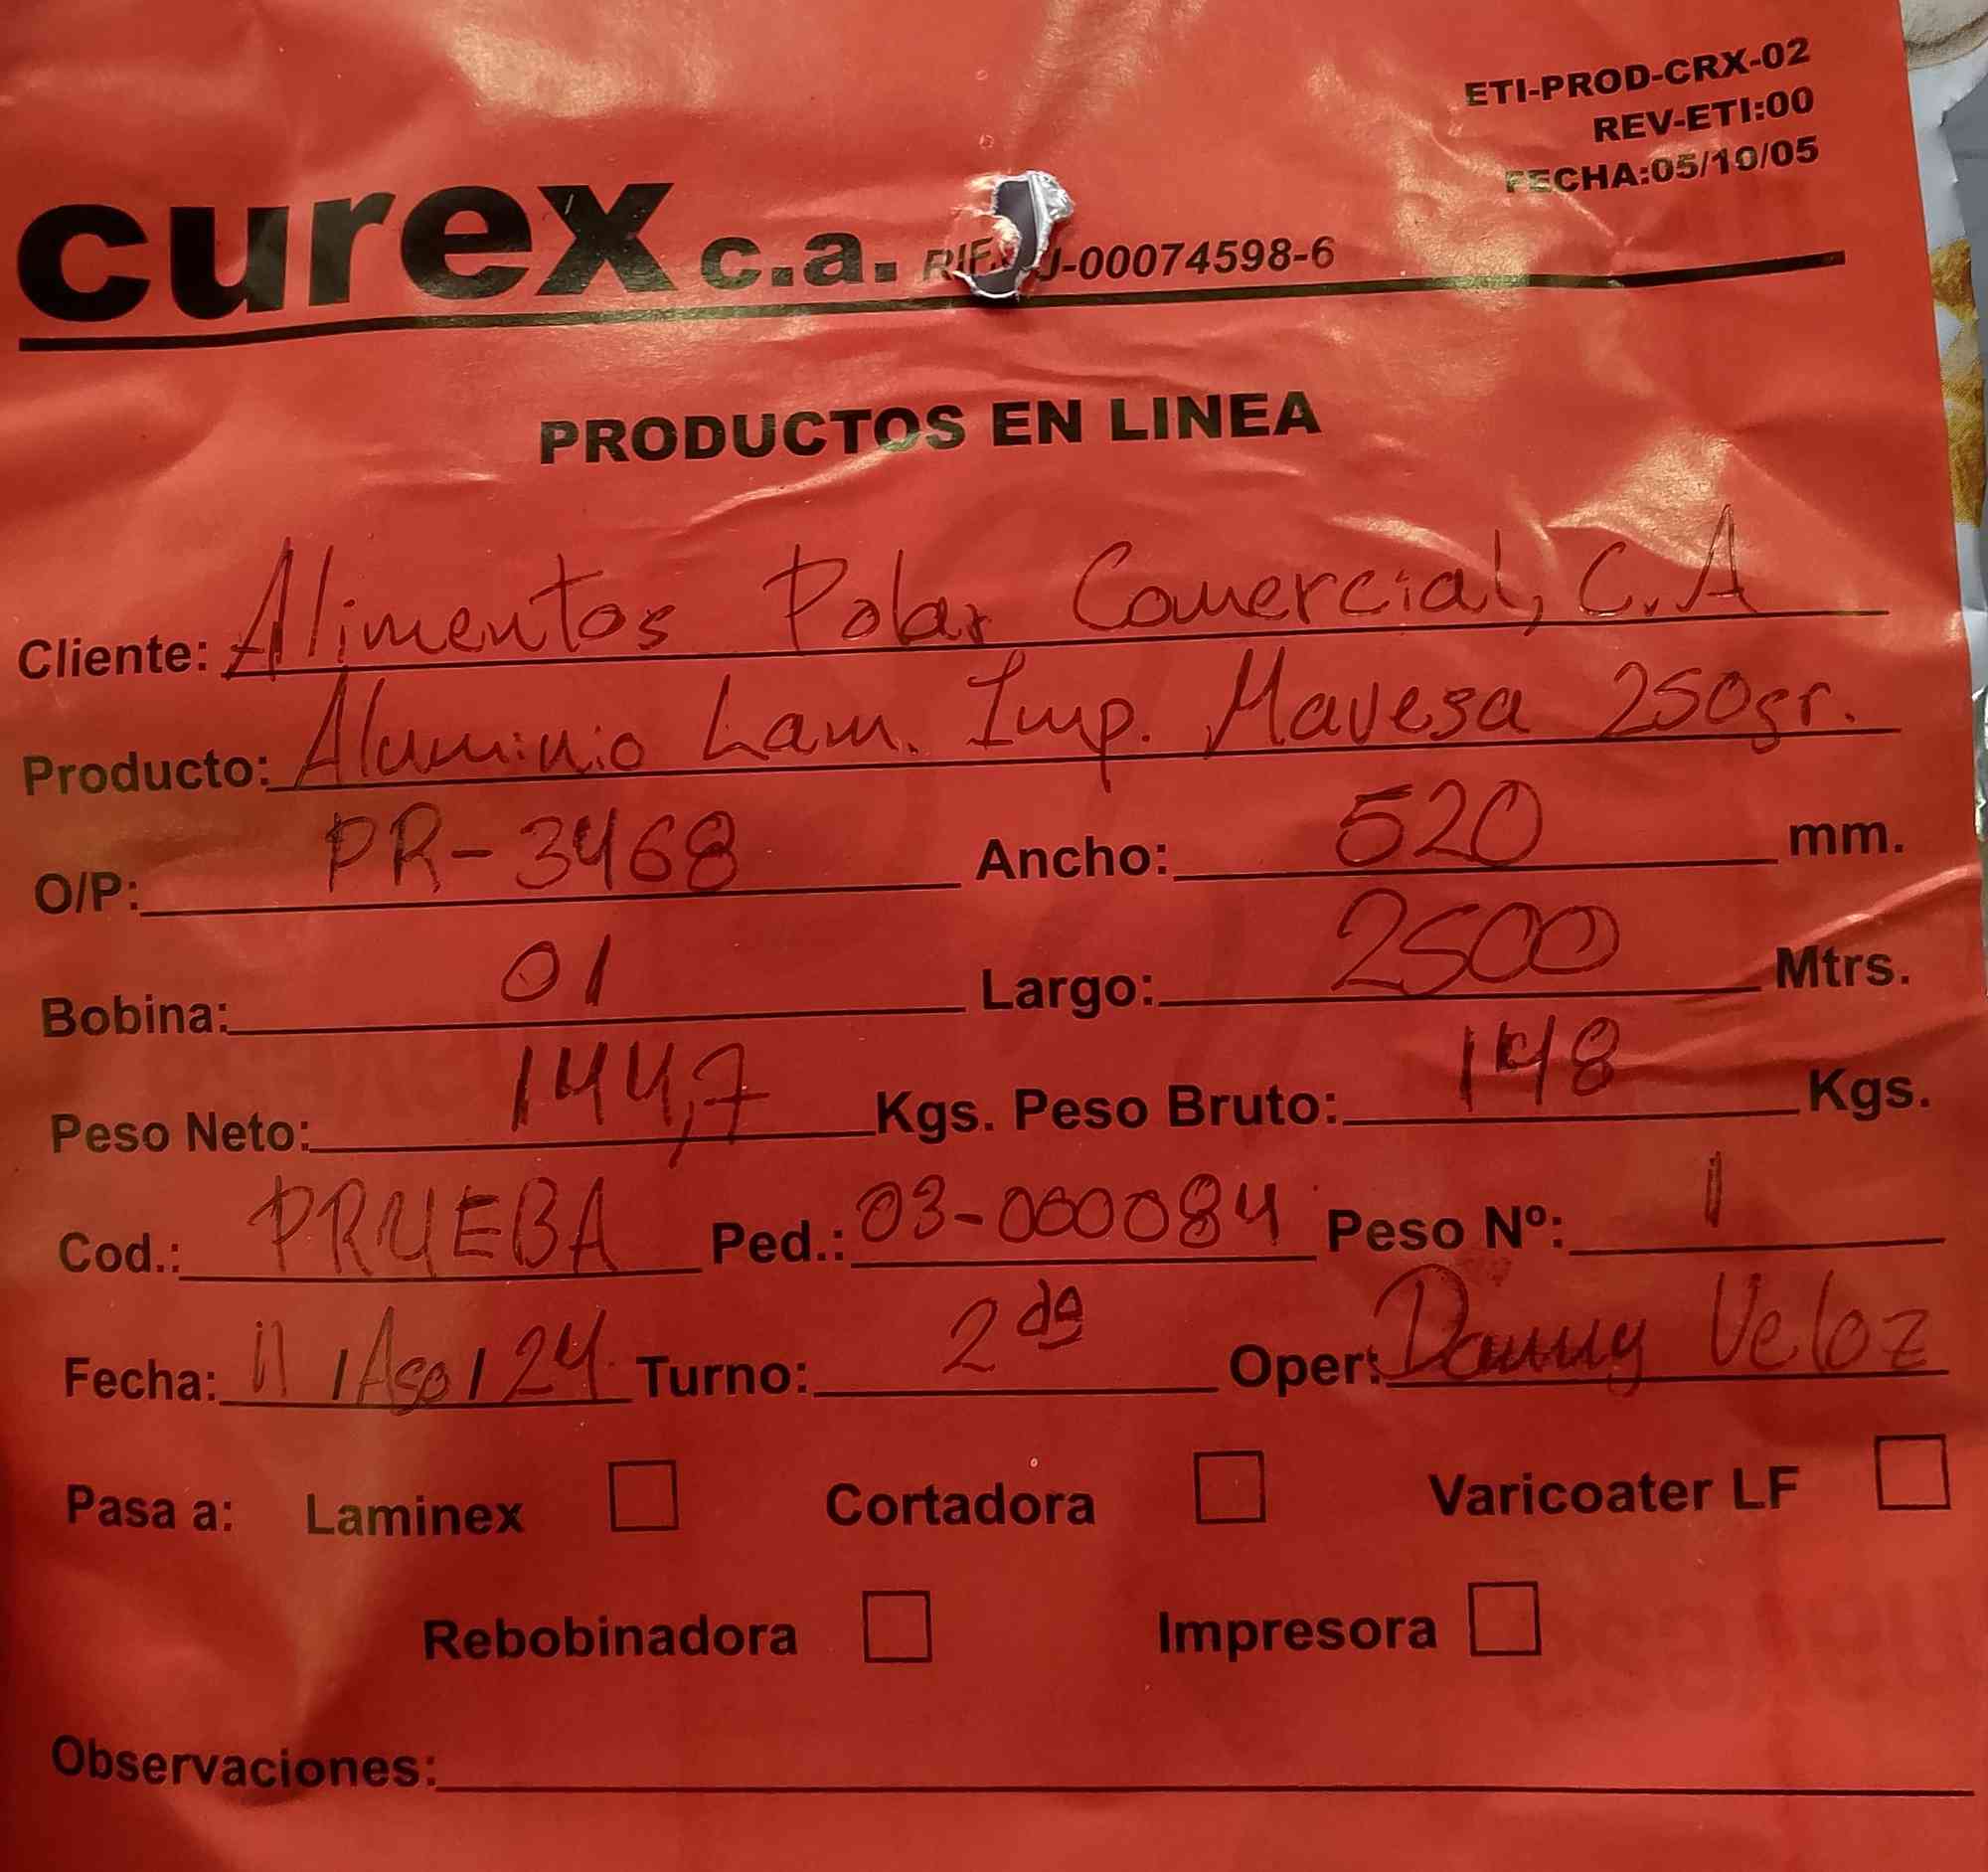 ETI-PROD-CRX-02
REV-ETI:00
FECHA:05/10/05
curex c.a. RIF. J-00074598-6
PRODUCTOS EN LINEA
Cliente: Alimentos Polar Comercial, C.A
Producto: Aluminio Lam. Imp. Mavesa 250gr.
O/P: PR-3468 Ancho: 520 mm.
Bobina: 01 Largo: 2500 Mtrs.
Peso Neto: 144,7 Kgs. Peso Bruto: 148 Kgs.
Cod.: PRUEBA Ped.: 03-000084 Peso Nº: 1
Fecha: 11 / Ago / 24 Turno: 2da Oper: Danny Veloz
Pasa a: Laminex Cortadora Varicoater LF
Rebobinadora Impresora
Observaciones: